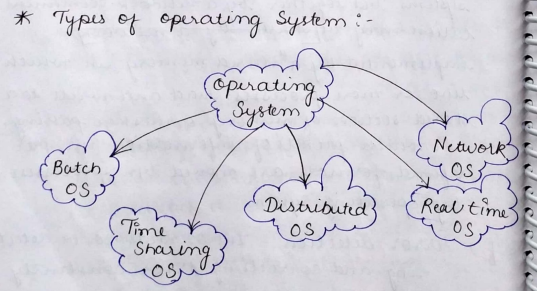 * Types of operating System :-
Operating
System
Batch
OS
Time
Sharing
OS
Distributed
OS
Real time
OS
Network
OS